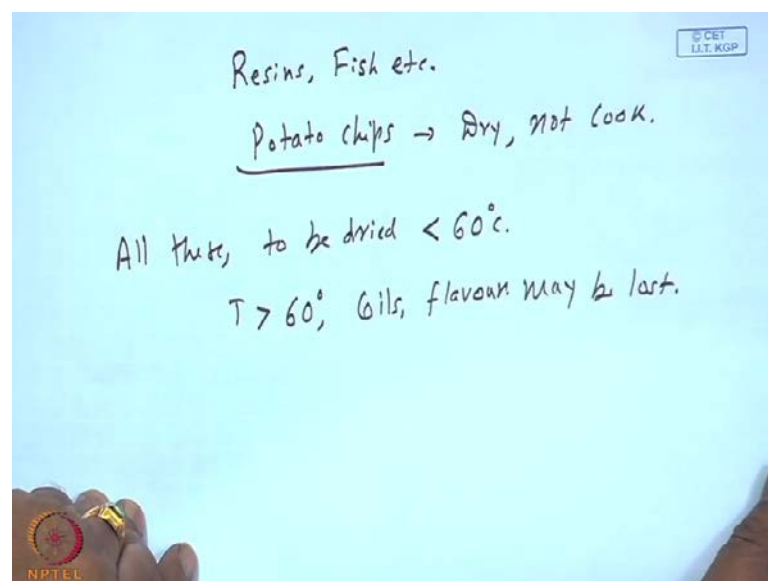 © CET
I.I.T. KGP
Resins, Fish etc.
Potato chips → Dry, not cook.
All these, to be dried < 60°c.
T > 60°, Oils, flavour may be lost.
NPTEL